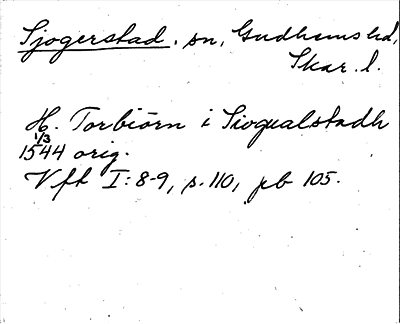 Sjogerstad. sn, Gudhems hd,
Skar. l.
H. Torbiörn i Sioqualstadh
1/3
1544 orig.
Vft I:8-9, s. 110, pb 105.